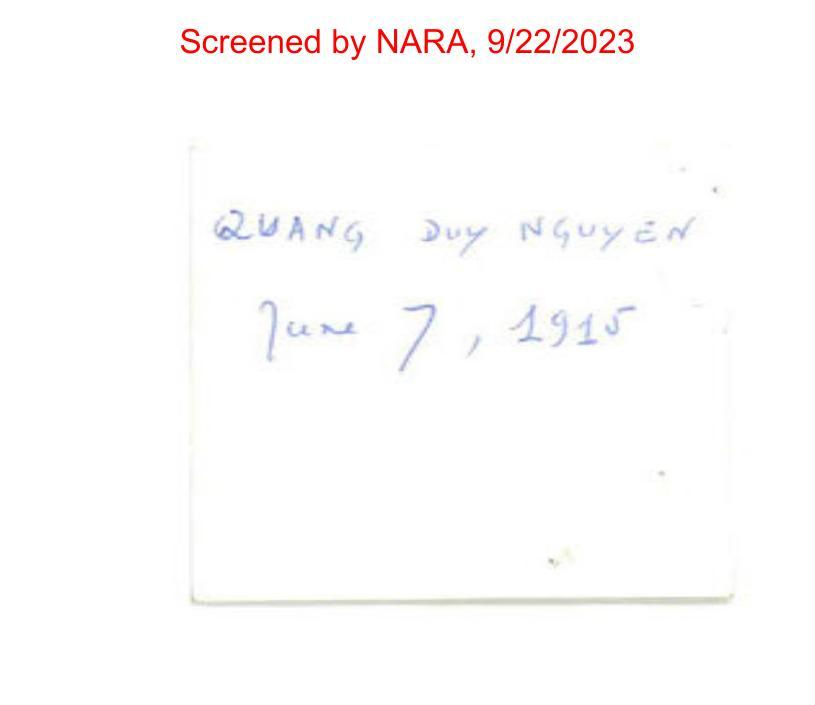 Screened by NARA, 9/22/2023
QUANG DUY NGUYEN
June 7, 1915